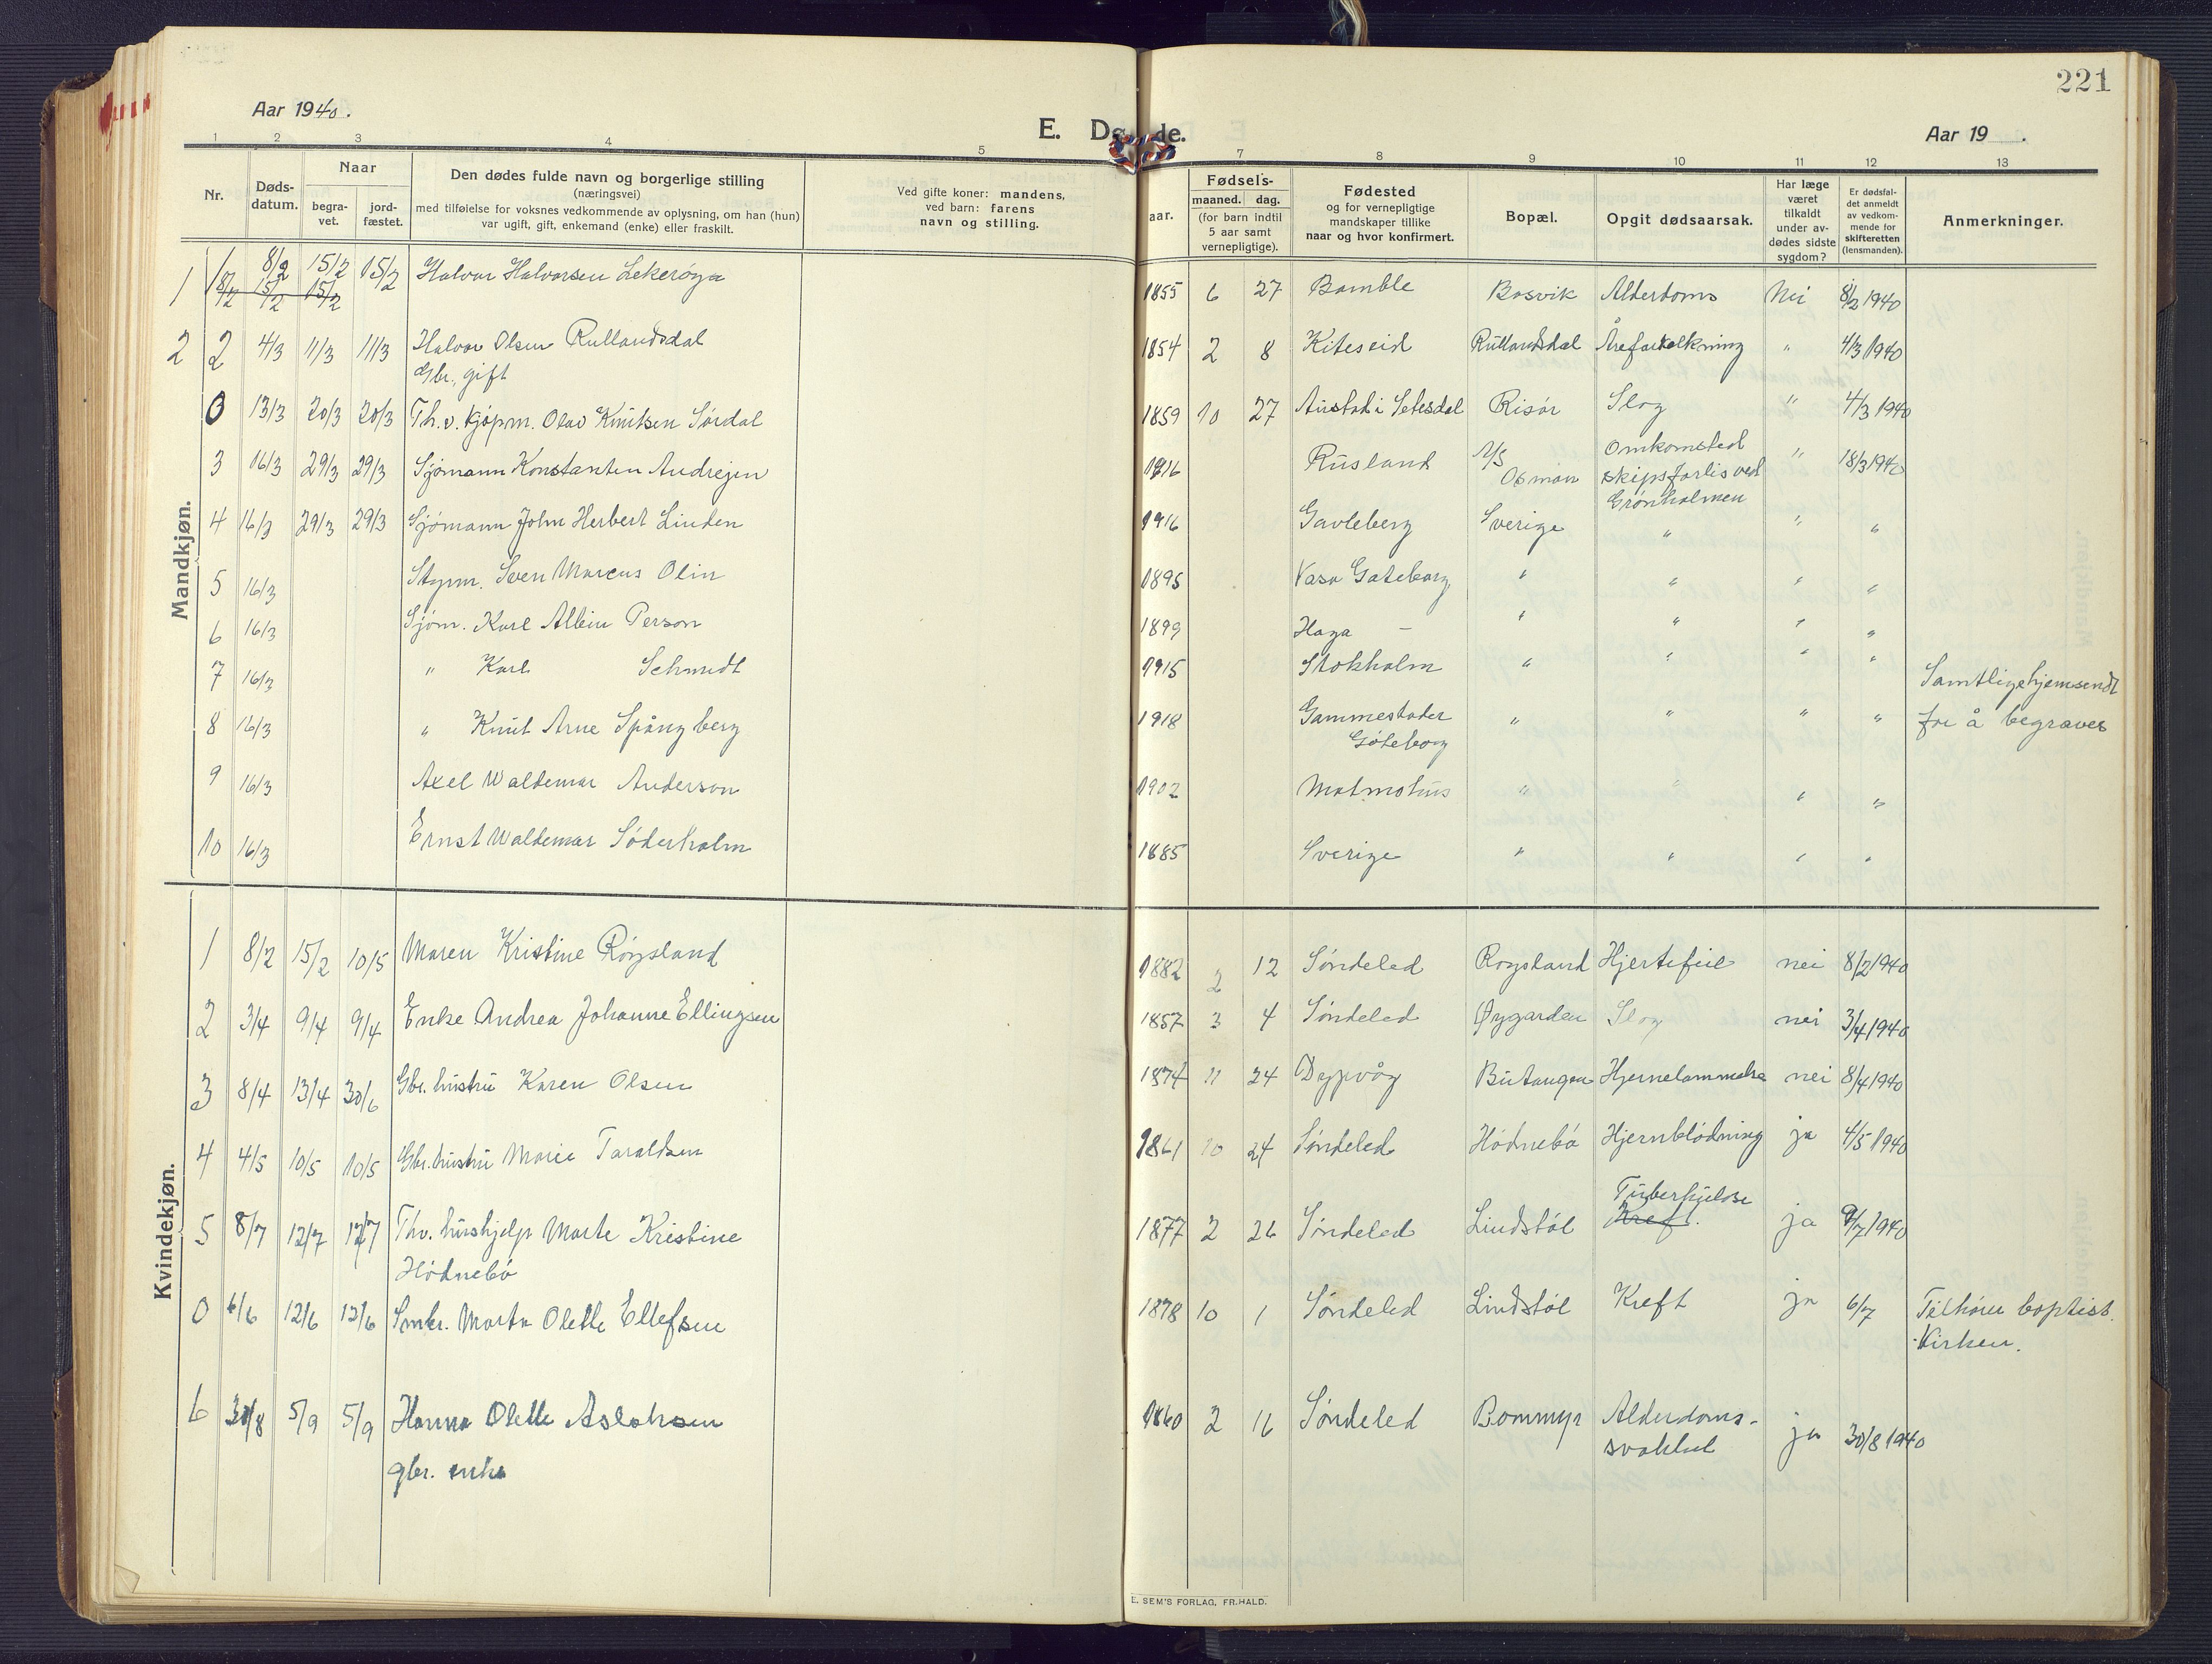 221
Aar 1940.
E. Dø de.
Aar 19 .
1 2 3 4 5 7 8 9 10 11 12 13
Nr.
Døds-
datum.
Naar
begra-
vet.
jord-
fæstet.
Den dødes fulde navn og borgerlige stilling
(næringsvei)
med tilføielse for voksnes vedkommende av oplysning, om han (hun)
var ugift, gift, enkemand (enke) eller fraskilt.
Ved gifte koner: mandens,
ved barn: farens
navn og stilling.
aar.
Fødsels-
maaned. dag.
(for barn indtil
5 aar samt
vernepligtige).
Fødested
og for vernepligtige
mandskaper tillike
naar og hvor konfirmert.
Bopæl.
Opgit dødsaarsak.
Har læge
været
tilkaldt
under av-
dødes sidste
sygdom?
Er dødsfal-
det anmeldt
av vedkom-
mende for
skifteretten
(lensmanden).
Anmerkninger.
Mandkjøn.
1 1 8/2 15/2 15/2 Halvor Halvorsen Lekerøya 1855 6 27 Bamble Bosvik Alderdoms Nei 8/2 1940
8/2 15/2 15/2
2 2 4/3 11/3 11/3 Halvor Olsen Rullandsdal 1854 2 8 Kiteseid Rullandsdal Åreforkalkning " 4/3 1940
Gbr., gift
0 13/3 20/3 20/3 Th. v. Kjøpm. Olav Knutsen Sørdal 1859 10 27 Austad i Setesdal Risør Slag " 4/3 1940
3 16/3 29/3 29/3 Sjømann Konstantin Andrejen 1916 Rusland M/S Osman Omkom sted " 18/3 1940
skipsforlis ved
Grønholmen
4 16/3 29/3 29/3 Sjømann John Herbert Linden 1916 Gavleberg Sverige " " "
5 16/3 Styrm. Sven Marcus Olin 1895 Vasa Gøteborg " " " "
6 16/3 Sjøm. Karl Albin Person 1899 Haga — " " " "
7 16/3 " Karl Schmidt 1915 Stokholm " " " " Samtlige hjemsendt
8 16/3 " Knut Arne Spångberg 1918 Gammestader " " " " for å begraves
Gøteborg
9 16/3 Axel Waldemar Anderson 1902 Malmøhus " " " "
10 16/3 Ernst Waldemar Söderholm 1885 Sverige " " " "
Kvindekjøn.
1 8/2 15/2 10/5 Maren Kristine Røysland 1882 2 12 Søndeled Røysland Hjertefeil nei 8/2 1940
2 3/4 9/4 9/4 Enke Andrea Johanne Ellingsen 1857 3 4 Søndeled Øygarden Slag nei 3/4 1940
3 8/4 13/4 30/6 Gbr. hustru Karen Olsen 1874 11 24 Dypvåg Butangen Hjernelammelse nei 8/4 1940
4 4/5 10/5 10/5 Gbr. hustru Marie Taraldsen 1861 10 24 Søndeled Hødnebø Hjernblødning ja 4/5 1940
Tuberkulose
5 8/7 12/7 12/7 Thv. hushjelp Marte Kristine 1877 2 26 Søndeled Lindstøl Kreft. ja 9/7 1940
Hødnebø
0 6/6 12/6 12/6 Smbr. Marta Olette Ellefsen 1878 10 1 Søndeled Lindstøl Kreft ja 6/7 Tilhører baptist.
Kirken.
6 30/8 5/9 5/9 Hanna Olette Aslaksen 1860 2 16 Søndeled Bommyr Alderdoms- ja 30/8 1940
svakhet
gbr. enke
E. SEM'S FORLAG, FR.HALD.